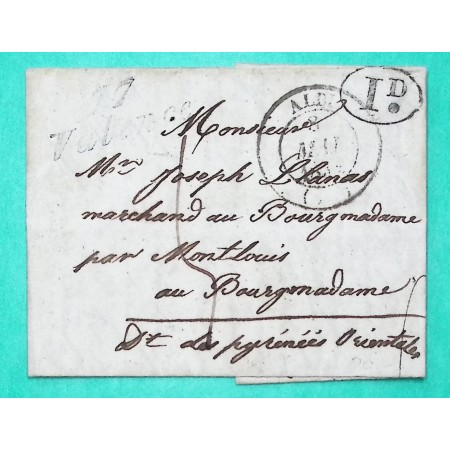 77
ALBI
8
1D.
Monsieur
Mr. Joseph Llanas
marchand au Bourgmadame
par Montlouis
au Bourgmadame
Dt des pyrénéés Orientales